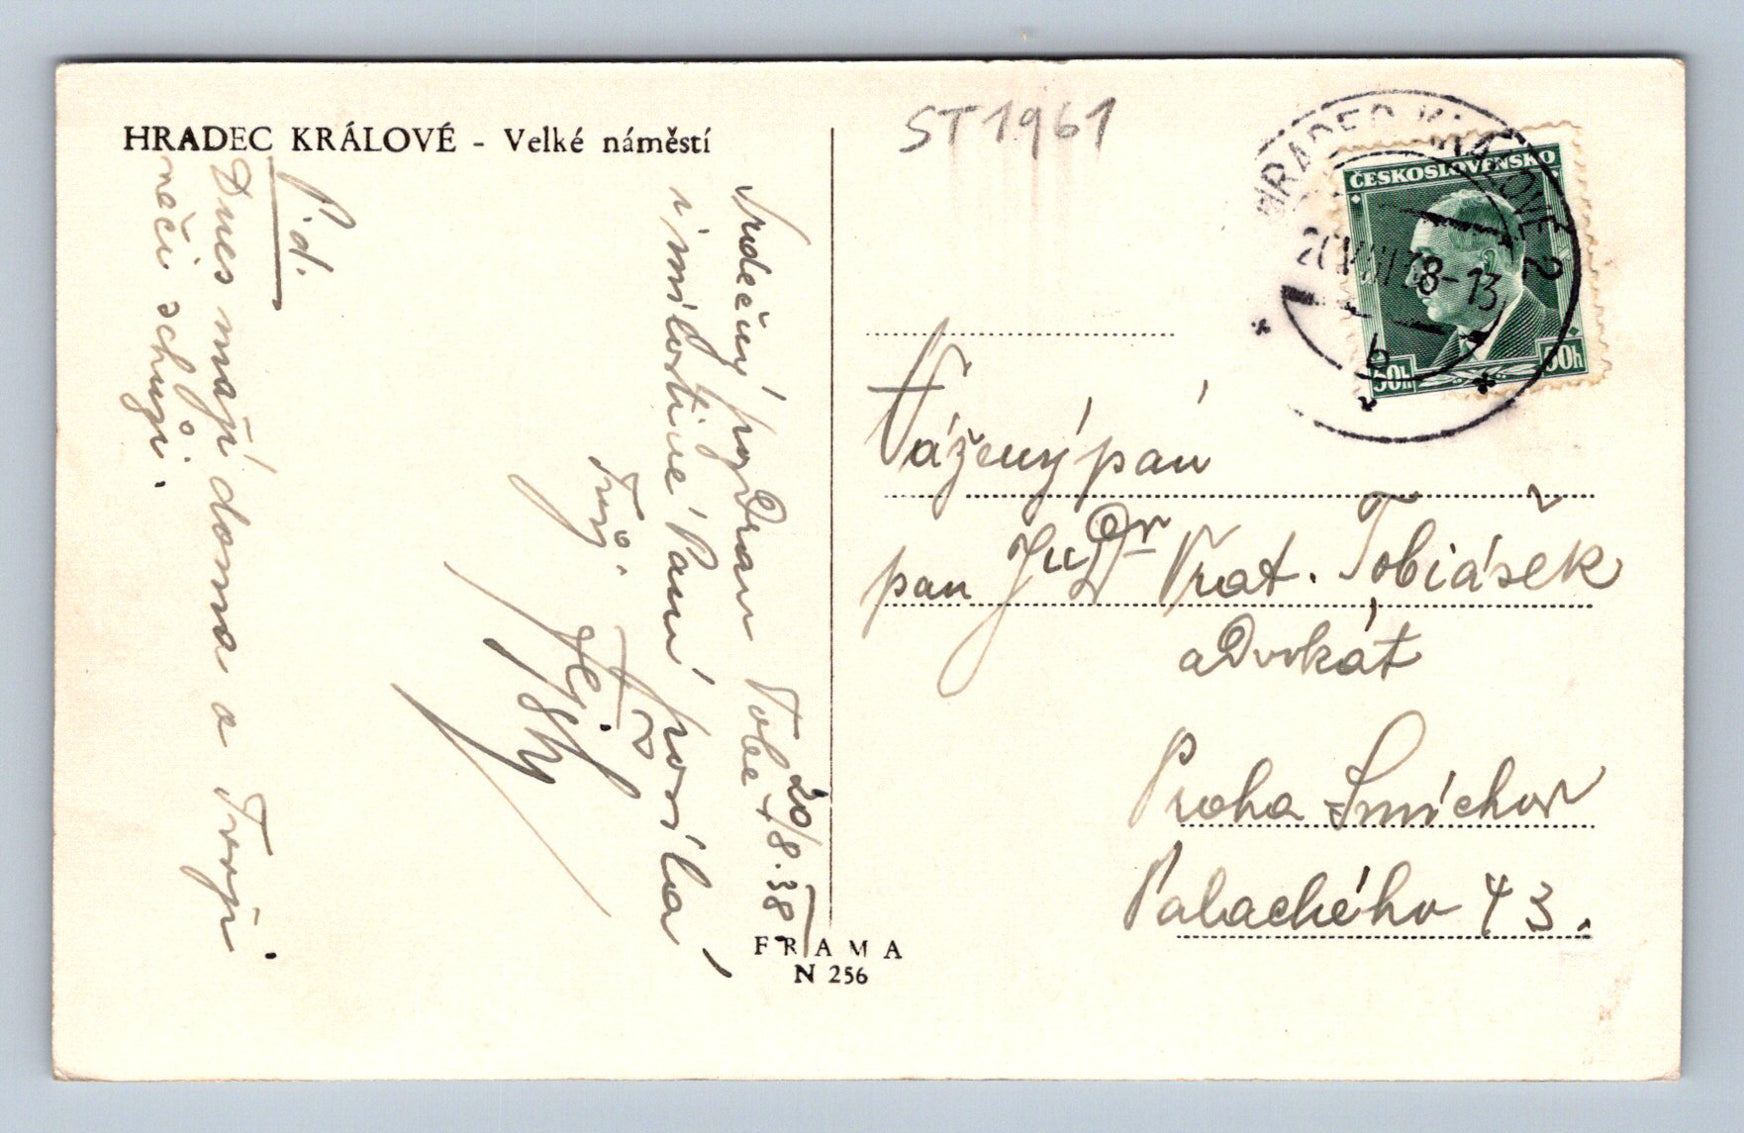 HRADEC KRÁLOVÉ - Velké náměstí
ST1961
HRADEC KRÁLOVÉ 2
20.VIII.38-13
b
ČESKOSLOVENSKO
50h 50h
20/8.38
Srdečný pozdrav Tobě +
i milostivé Paní posílá
Tvůj
P.d.
Dnes mají doma a Tvoji
něči schůzi.
Vážený pán
pan JuDr Vrat. Tobiášek
advokát
Praha Smíchov
Palackého 43.
FRAMA
N 256